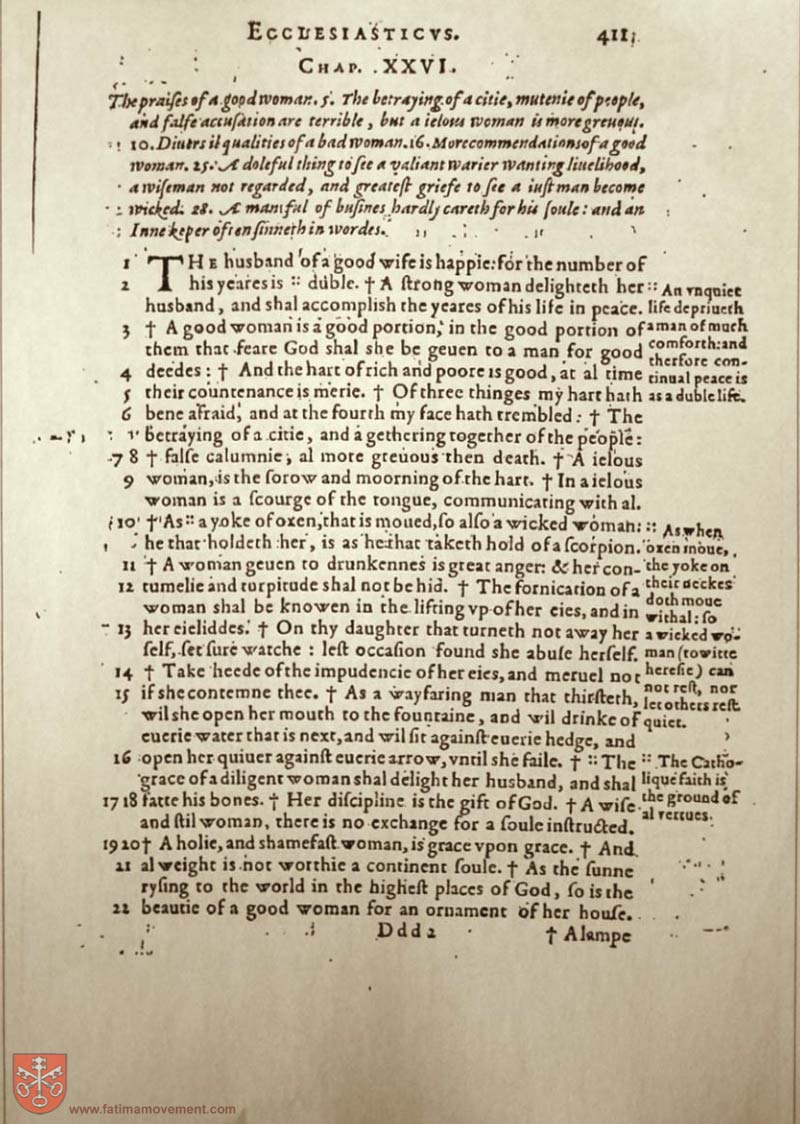 ECCLESIASTICVS. 411
CHAP. XXVI.
The praiſes of a good woman. 5. The betraying of a citie, mutenie of people,
and falſe accuſation are terrible, but a ielous woman is more greuous.
10. Diuers il qualities of a bad woman. 16. More commendations of a good
woman. 25. A doleful thing to ſee a valiant warier wanting liuelihood,
a wiſeman not regarded, and greateſt griefe to ſee a iuſt man become
wicked. 28. A man ful of buſines hardly careth for his ſoule: and an
Innekeper often ſinneth in wordes.
1 THE husband of a good wife is happie: for the number of
2 his yeares is :: duble. † A ſtrong woman delighteth her :: An vnquiet
husband, and shal accomplish the yeares of his life in peace. life depriueth
3 † A good woman is a good portion, in the good portion of a man of much
them that feare God shal she be geuen to a man for good comforth: and
4 deedes: † And the hart of rich and poore is good, at al time therfore con-
tinual peace is
5 their countenance is merie. † Of three thinges my hart hath as a duble life.
6 bene afraid, and at the fourth my face hath trembled: † The
betraying of a citie, and a gethering together of the people:
7 8 † falſe calumnie, al more greuous then death. † A ielous
9 woman, is the ſorow and moorning of the hart. † In a ielous
woman is a ſcourge of the tongue, communicating with al.
10 † As :: a yoke of oxen, that is moued, ſo alſo a wicked woman: :: As when
he that holdeth her, is as he that taketh hold of a ſcorpion. oxen moue,
11 † A woman geuen to drunkennes is great anger: & her con- the yoke on
12 tumelie and turpitude shal not be hid. † The fornication of a their neckes
doth moue
woman shal be knowen in the lifting vp of her eies, and in withal: ſo
13 her eieliddes. † On thy daughter that turneth not away her a wicked wo-
ſelf, ſet ſure watche: leſt occaſion found she abuſe herſelf. man (to witte
14 † Take heede of the impudencie of her eies, and meruel not hereſie) can
15 if she contemne thee. † As a wayfaring man that thirſteth, not reſt, nor
let others reſt
wil she open her mouth to the fountaine, and wil drinke of quiet.
euerie water that is next, and wil ſit againſt euerie hedge, and
16 open her quiuer againſt euerie arrow, vntil she faile. † :: The :: The Catho-
grace of a diligent woman shal delight her husband, and shal lique faith is
17 18 fatte his bones. † Her diſcipline is the gift of God. † A wiſe the ground of
and ſtil woman, there is no exchange for a ſoule inſtructed. al vertues.
19 20 † A holie, and shamefaſt woman, is grace vpon grace. † And
21 al weight is not worthie a continent ſoule. † As the ſunne
ryſing to the world in the higheſt places of God, ſo is the
22 beautie of a good woman for an ornament of her houſe.
Ddd 2 † A lampe
www.fatimamovement.com